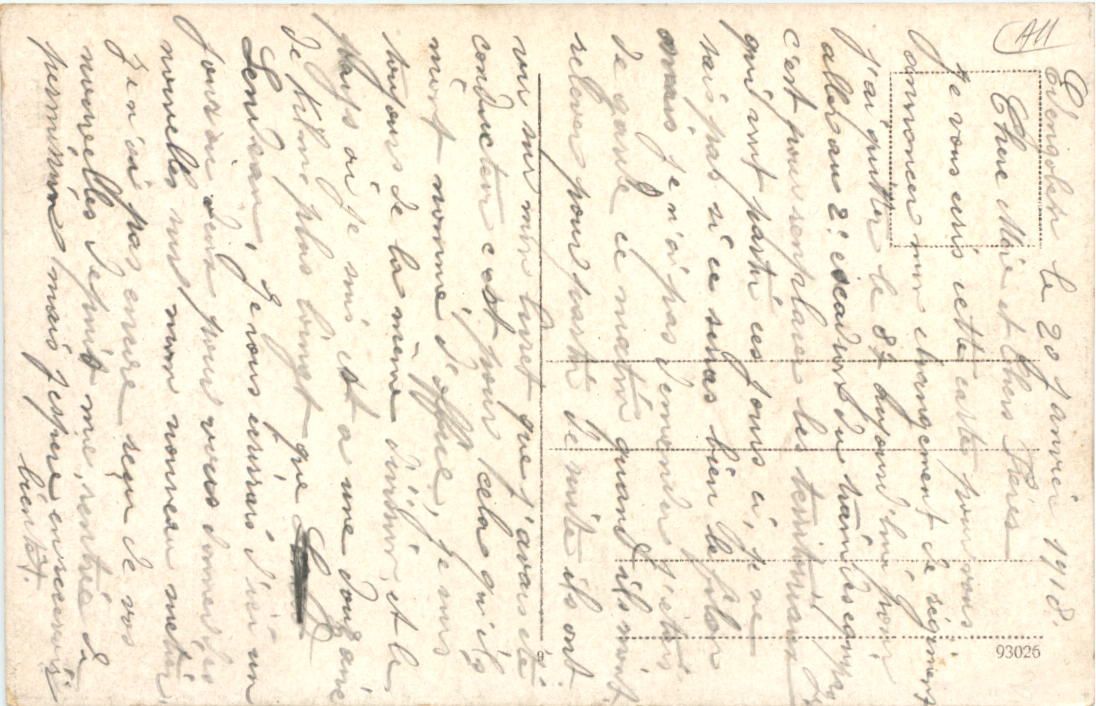 le 20 Janvier 1918.
Chère Marie et chers Pères
Je vous écris cette carte pour vous
annoncer mon changement de régiment
J'ai quitter le 87 aujourd'hui pour
aller au 2e escadron du train des equipages
c'est pour remplacer les territoriaux
qui sont partit ces jours ci, je ne
sais pas si ce seras bien le filon
mais je n'ai pas demender j'étais
de garde ce matin quand ils m'ont
relever pour partir de suite ils ont
vu sur mon livret que j'avais été
conducteur c'est pour cela qu'ils
m'ont nommé d'office, je suis
toujours de la même division et le
pays où je suis est a une douzaine
de kilom plus loinet que
Lendean, je vous ecrirais d'ici un
jour ou deux pour vous donner des
nouvelles sur mon nouveau metier
Je n'ai pas encore reçu de vos
nouvelles depuis ma rentrée de
permission mais j'espère en recevoir
bientôt.
A11
9
93026